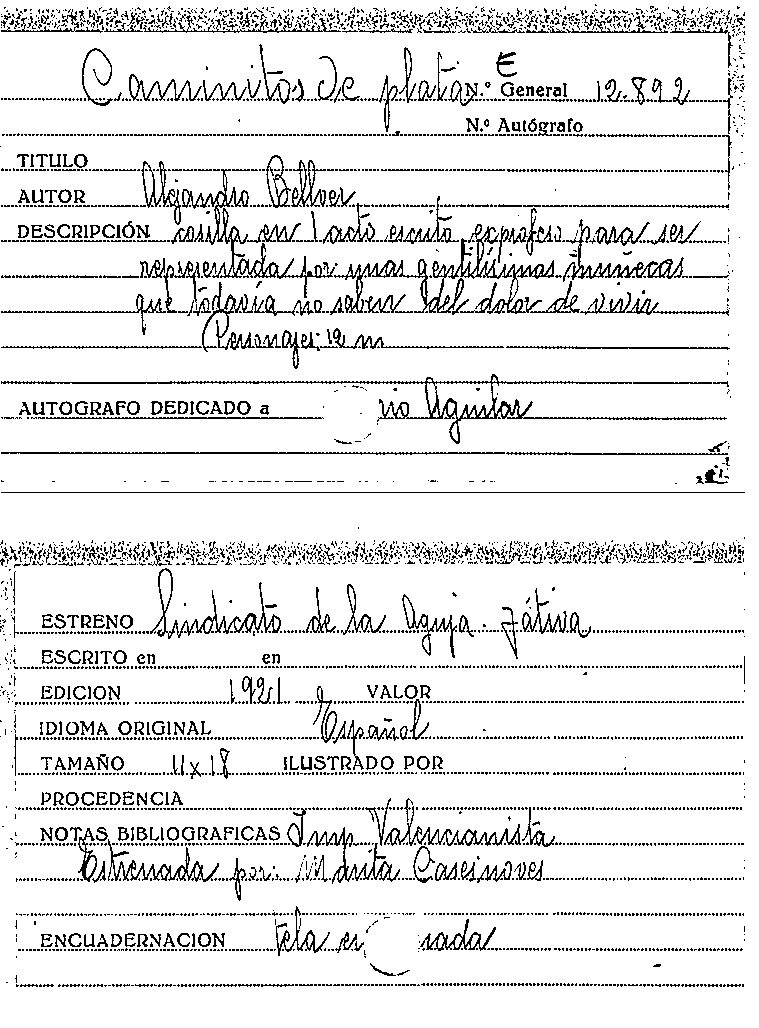 Caminitos de plata N.º General E 12.892
N.º Autógrafo
TITULO
AUTOR Alejandro Bellver
DESCRIPCIÓN cosilla en 1 acto escrito exprofeso para ser
representada por unas gentilísimas muñecas
que todavía no saben del dolor de vivir
Personajes: 12 m
AUTOGRAFO DEDICADO a rio Aguilar
ESTRENO Sindicato de la Aguja. Játiva
ESCRITO en en
EDICION 1921 VALOR
IDIOMA ORIGINAL Español
TAMAÑO 11x18 ILUSTRADO POR
PROCEDENCIA
NOTAS BIBLIOGRAFICAS Imp Valencianista
Estrenada por: Casesnoves
ENCUADERNACION tela